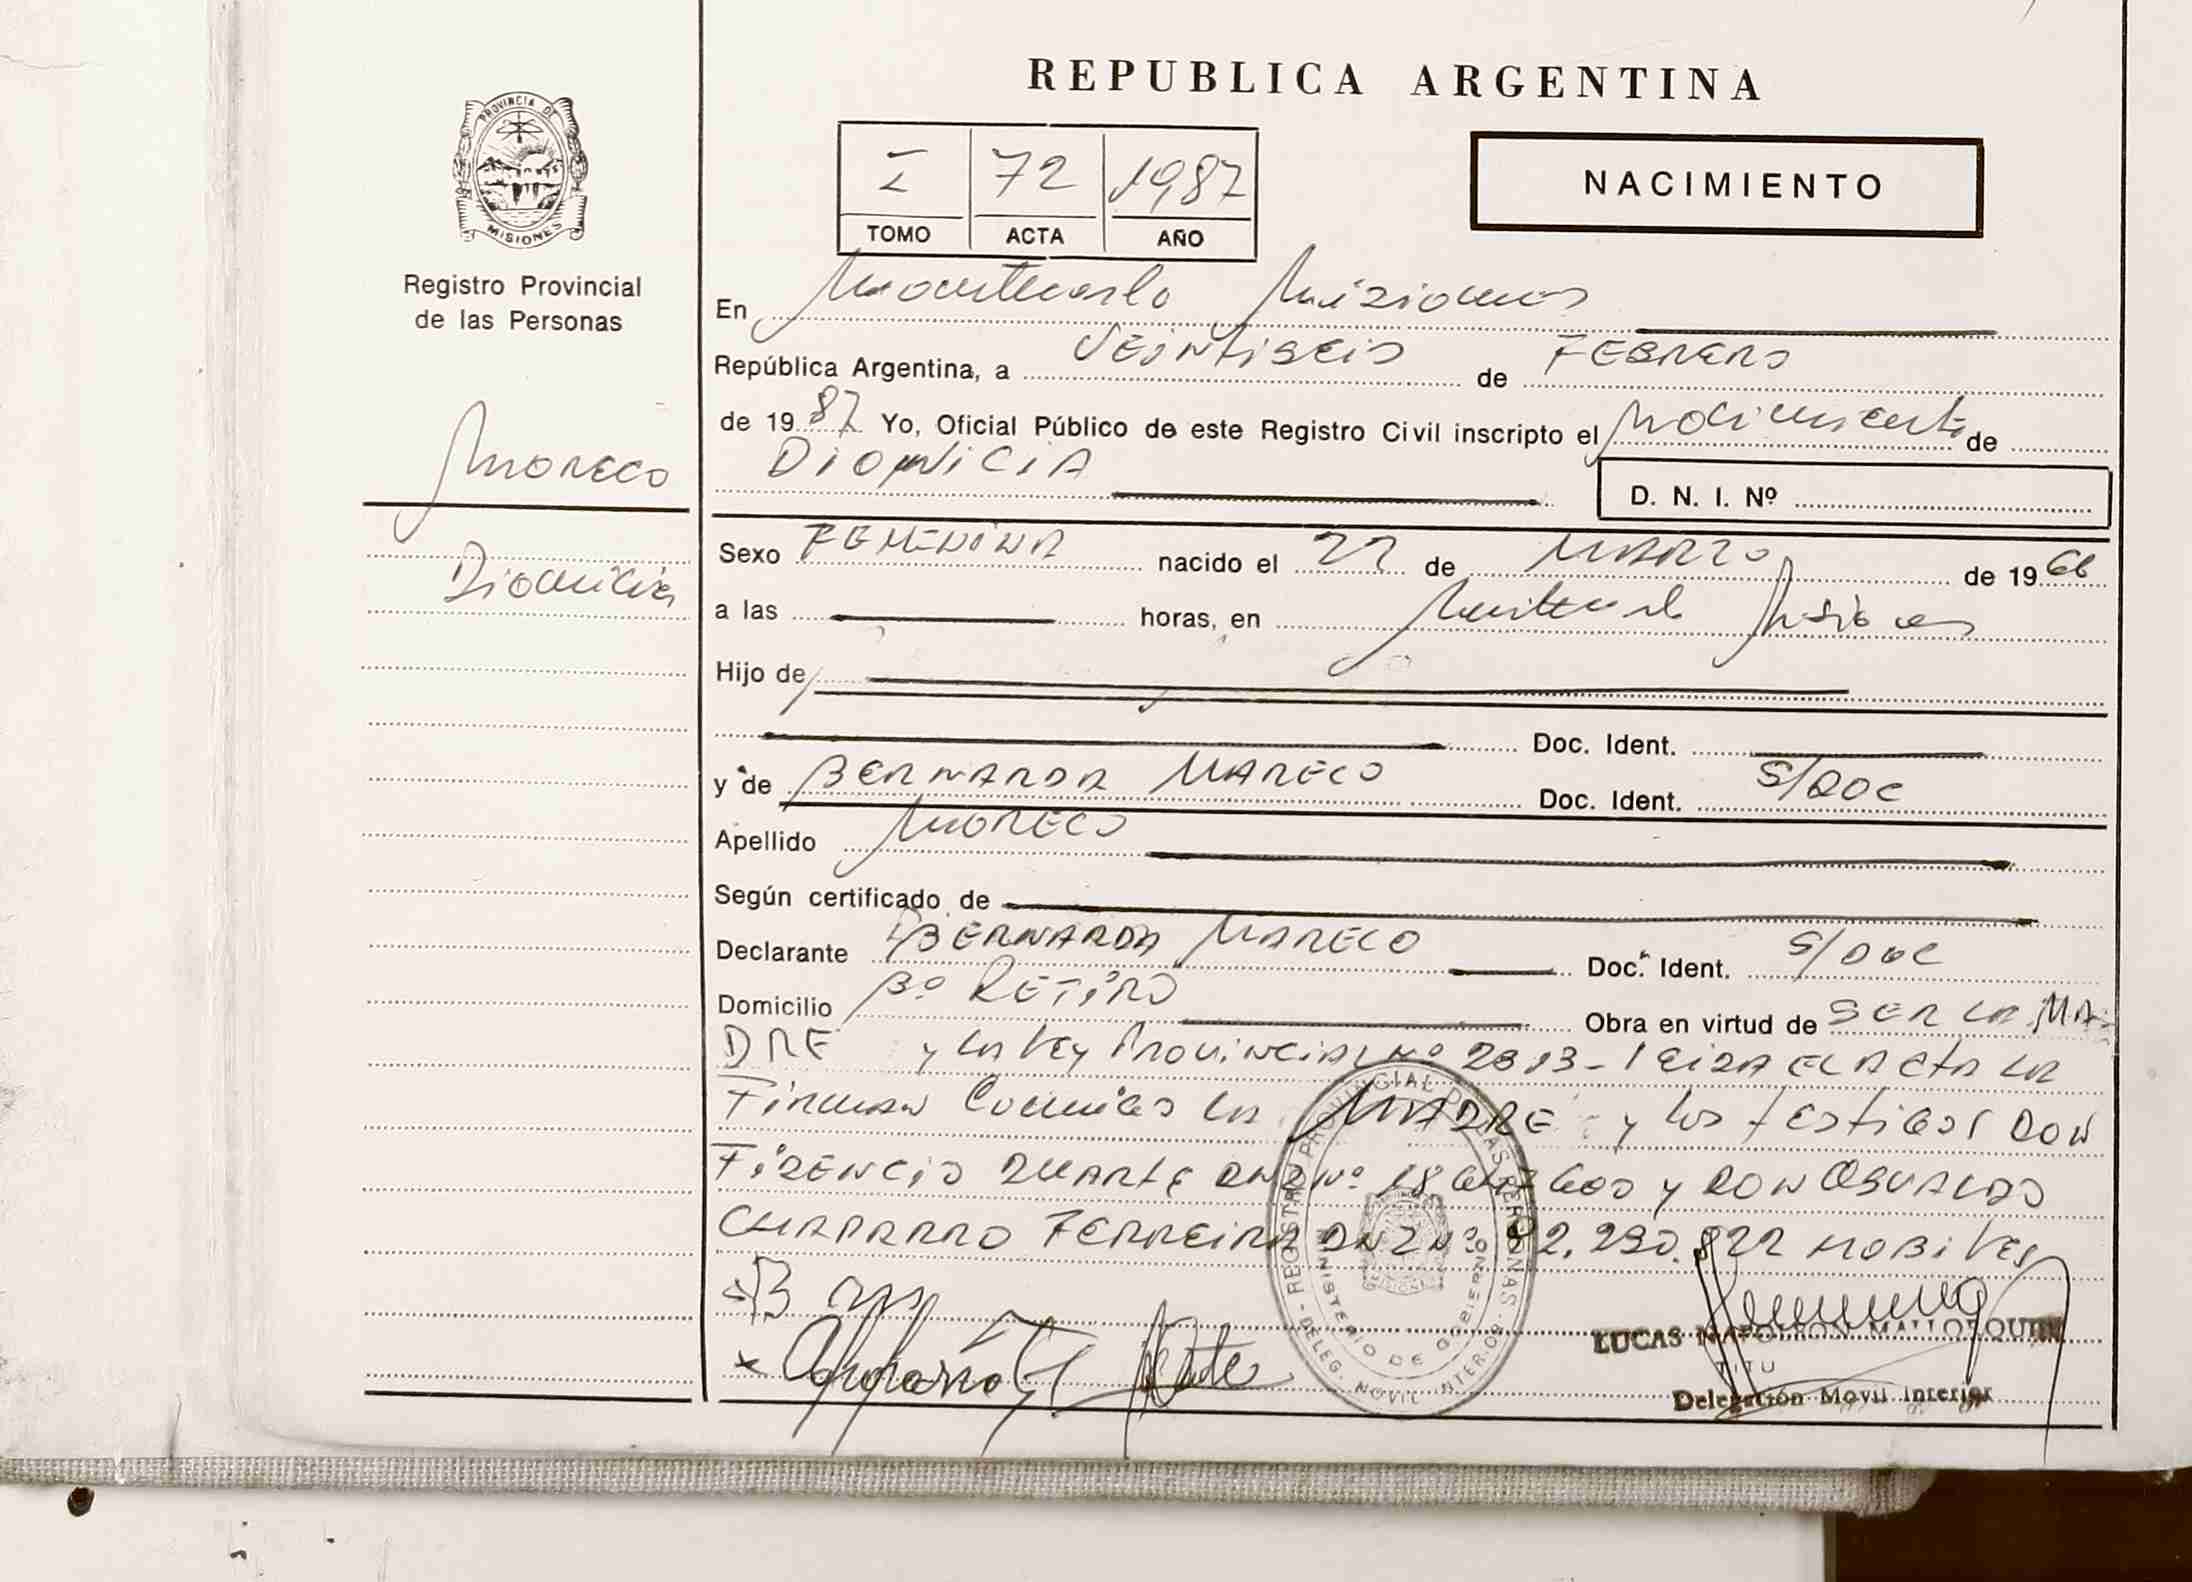 REPUBLICA ARGENTINA
PROVINCIA DE
MISIONES
I 72 1987
TOMO ACTA AÑO
NACIMIENTO
Registro Provincial
de las Personas
Mareco
Dionicia
En Montecarlo Misiones
República Argentina, a VEINTISEIS de FEBRERO
de 1987 Yo, Oficial Público de este Registro Civil inscripto el Nacimiento de
DIONICIA
D. N. I. Nº
Sexo FEMENINA nacido el 22 de MARZO de 1966
a las horas, en Montecarlo Misiones
Hijo de
Doc. Ident.
y de BERNARDA MARECO Doc. Ident. S/DOC
Apellido MARECO
Según certificado de
Declarante BERNARDA MARECO Doc. Ident. S/DOC
Domicilio Bº RETIRO Obra en virtud de SER LA MA
DRE y LA LEY PROVINCIAL Nº EL ACTA LA
Firman Conmigo LA MADRE y los testigos DON
DUARTE DNI Nº y DON OSVALDO
CHAPARRO FERREIRA DNI Nº
REGISTRO PROVINCIAL DE LAS PERSONAS
MINISTERIO DE GOBIERNO
DELEG. MOVIL INTERIOR
LUCAS NAPOLEON
TITU
Delegación Movil Interior